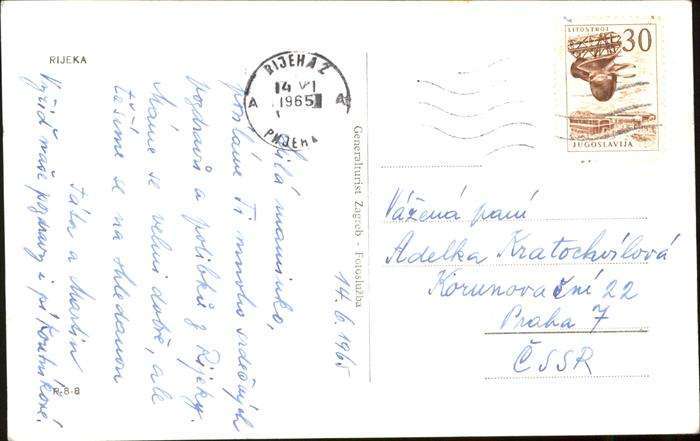 RIJEKA
RIJEKA 2
14 VI
1965
A A
РИЈЕКА
LITOSTROJ
30
JUGOSLAVIJA
Generalturist Zagreb - Fotoslužba
14. 6. 1965
Milá maminko,
posíláme Ti mnoho srdečných
pozdravů a polibků z Rijeky.
Máme se velmi dobře, ale
těšíme se na shledanou
Táta a Martin
Vyřiď naše pozdravy i pí
Vážená paní
Adelka Kratochvílová
Korunovační 22
Praha 7
ČSSR
R-8-8